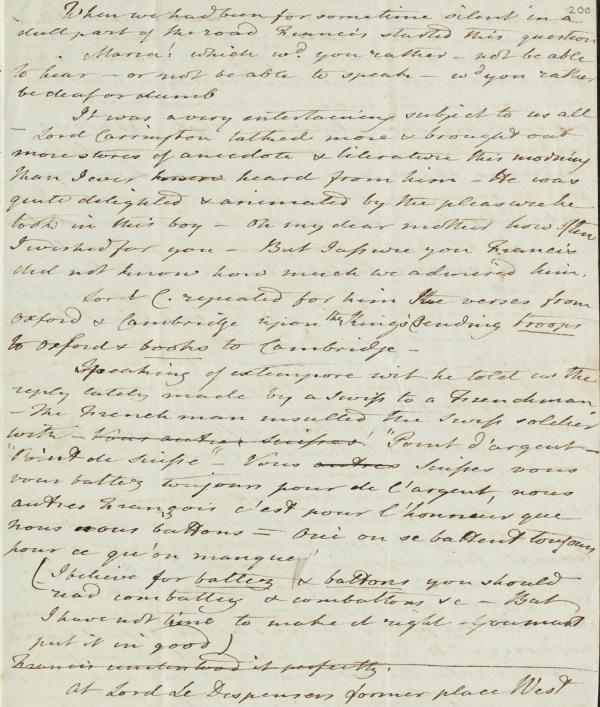 200
When we had been for some time silent in a
dull part of the road Francis started this question
Maria! which wd. you rather – not be able
to hear – or not be able to speak – wd you rather
be deaf or dumb
It was a very entertaining subject to us all
– Lord Carrington talked more & brought out
more stores of anecdote & literature this morning
than I ever heard from him – He was
quite delighted & animated by the pleasure he
took in this boy – Oh my dear mother how often
I wished for you – But I assure you Francis
did not know how much we admired him.
Lord C. repeated for him the verses from
Oxford & Cambridge upon the King's sending troops
to Oxford & books to Cambridge –
Speaking of extempore wit he told us the
reply lately made by a Swiss to a Frenchman
– The Frenchman insulted the Swiss soldier
with – Vous autres suisses! "Point d'argent –
"Point de Suisse" – Vous autres Suisses vous
vous battez toujours pour de l'argent, nous
autres François c'est pour l'honneur que
nous nous battons = Oui on se battent toujours
pour ce qu'on manque"
(I believe for battez & battons you should
read combattez & combattons &c – But
I have not time to make it right – You must
put it in good)
Francis understood it perfectly.
At Lord Le Despensers former place West